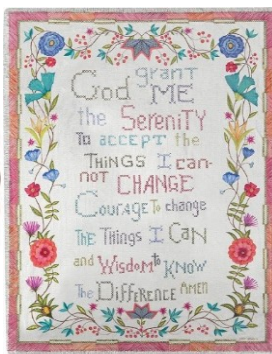 God grant
ME
the SERENITY
To ACCEPT the
THINGS I can-
not CHANGE
Courage To change
THE THINGS I CAN
and WISDOM to KNOW
The DIFFERENCE AMEN